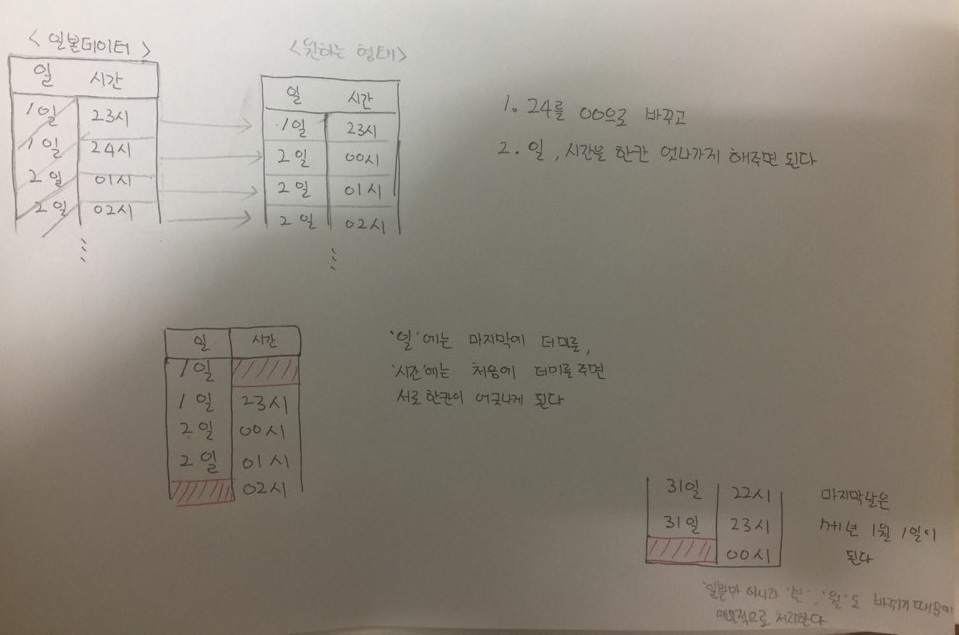 <일본데이터>
일 시간
1일 23시
1일 24시
2일 01시
2일 02시
<원하는 형태>
일 시간
1일 23시
2일 00시
2일 01시
2일 02시
1. 24를 00으로 바꾸고
2. 일, 시간을 한칸 엇나가게 해주면 된다
일 시간
1일
1일 23시
2일 00시
2일 01시
02시
'일'에는 마지막에 더미를,
'시간'에는 처음에 더미를 주면
서로 한칸이 어긋나게 된다
31일 22시
31일 23시
00시
마지막날은
n+1년 1월 1일이
된다
'일'뿐만 아니라 '년', '월'도 바뀌기 때문에
예외적으로 처리한다